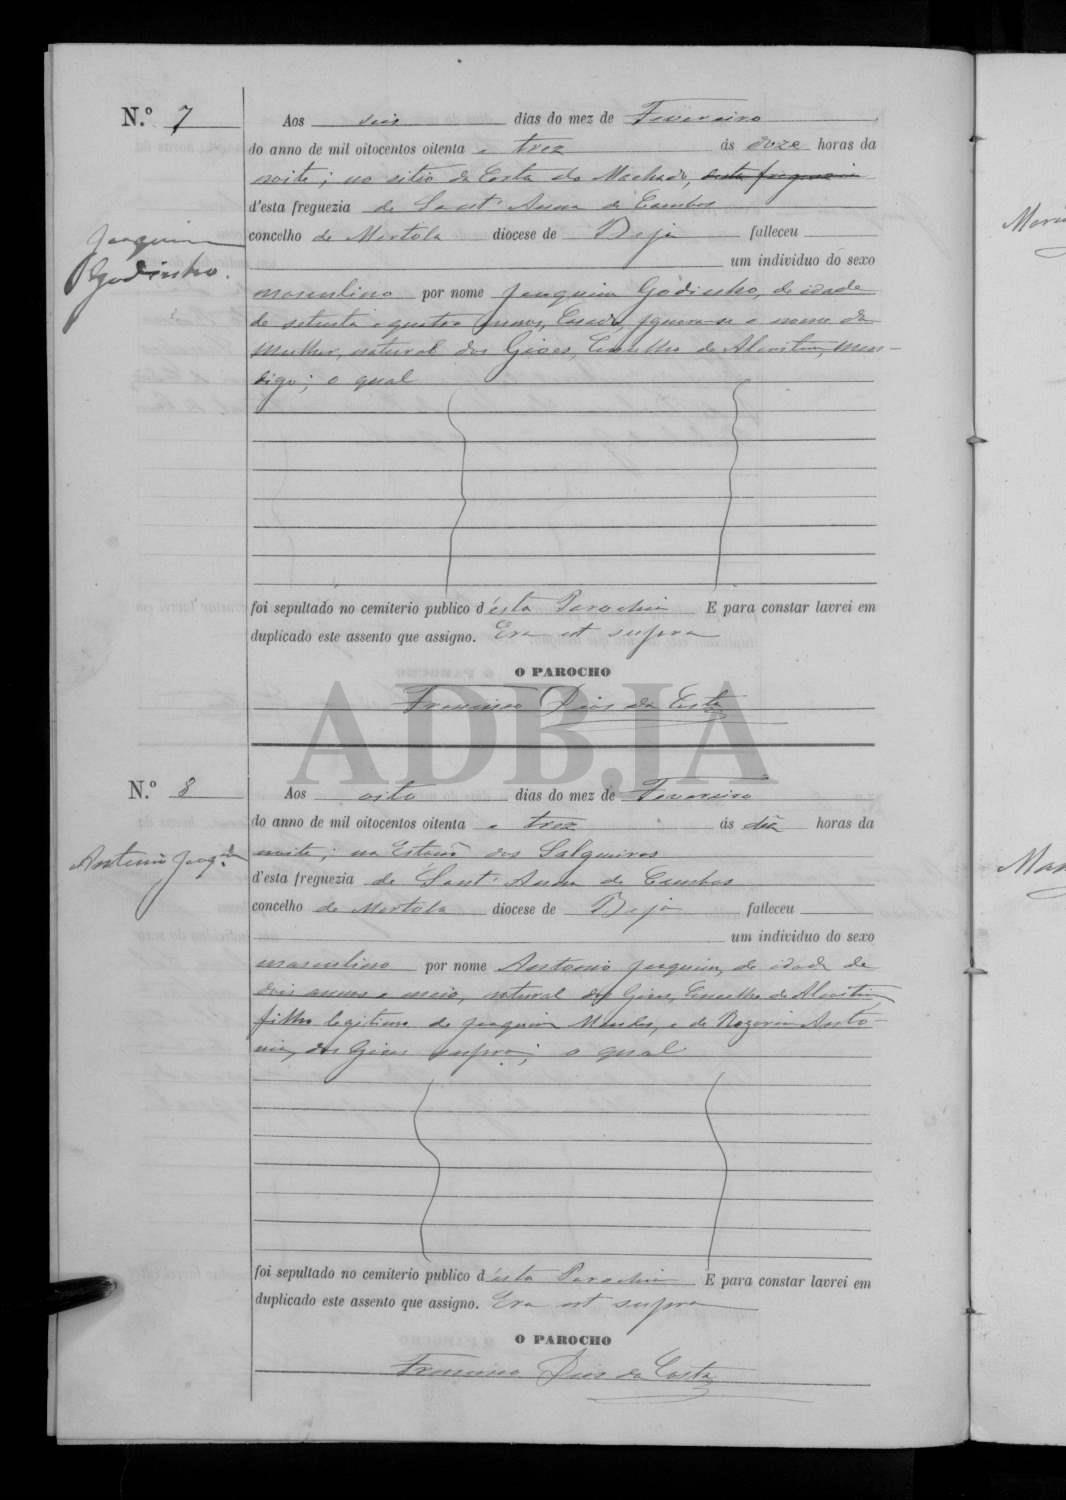 N.º 7
Aos seis dias do mez de Fevereiro
do anno de mil oitocentos oitenta e trez ás doze horas da
noite; no sitio da Costa do Machado, desta freguezia
d'esta freguezia de Sant' Anna de Cambas
concelho de Mertola diocese de Beja falleceu
Joaquim
Godinho.
um individuo do sexo
masculino por nome Joaquim Godinho, de idade
de setenta e quatro annos, Casado, ignora-se o nome da
mulher, natural dos Giões, Concelho de Alcoutim, Men-
digo; o qual
foi sepultado no cemiterio publico d'esta Parochia E para constar lavrei em
duplicado este assento que assigno. Era ut supra
O PAROCHO
Francisco Dias da Costa
ADBJA
N.º 8
Aos oito dias do mez de Fevereiro
do anno de mil oitocentos oitenta e trez ás dez horas da
Antonio Joaq.
noite; na dos Salgueiros
d'esta freguezia de Sant' Anna de Cambas
concelho de Mertola diocese de Beja falleceu
um individuo do sexo
masculino por nome Antonio Joaquim, de idade de
dois annos e meio, natural dos Giões, Concelho de Alcoutim,
filho legitimo de Joaquim Mendes, e de Rozaria Anto-
nia, dos Giões supra; o qual
foi sepultado no cemiterio publico d'esta Parochia E para constar lavrei em
duplicado este assento que assigno. Era ut supra
O PAROCHO
Francisco Dias da Costa